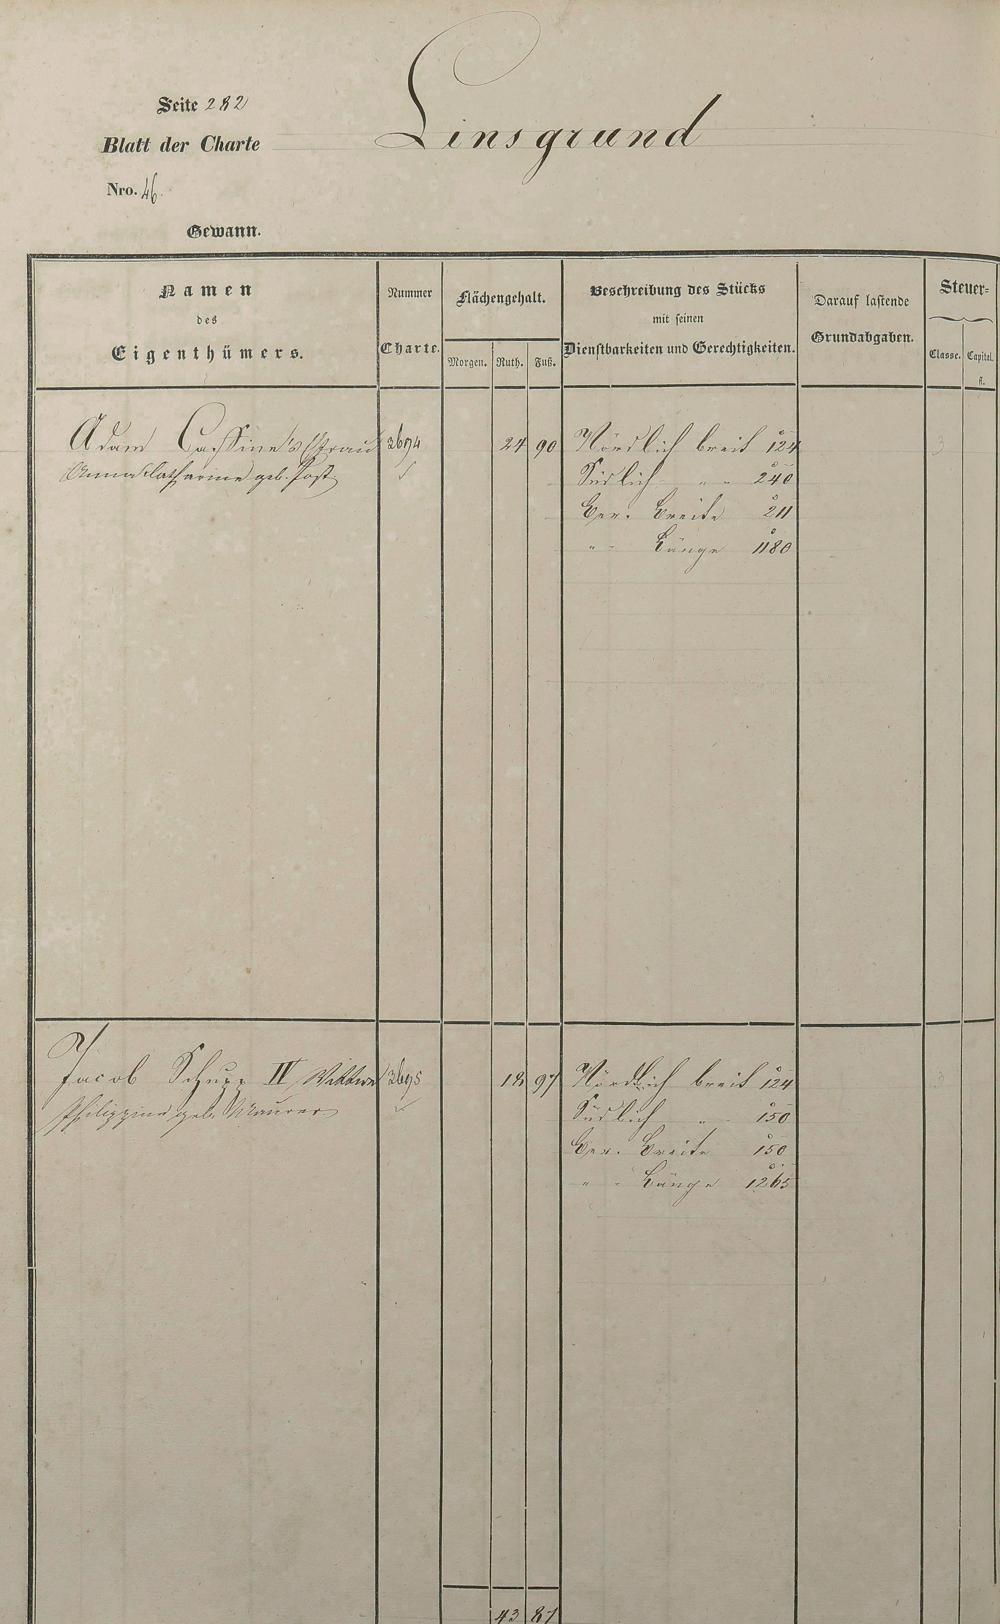 Seite 282
Linsgrund
Blatt der Charte
Nro. 46.
Gewann.
Namen
des
Eigenthümers.
Nummer
Charte.
Flächengehalt.
Morgen. Ruth. Fuß.
Beschreibung des Stücks
mit seinen
Dienstbarkeiten und Gerechtigkeiten.
Darauf lastende
Grundabgaben.
Steuer=
Classe. Capital.
fl.
Adam Cassine's Frau 3694 24 90 Nördlich breit 124
Anna Catharine geb. Post Südlich " " 240
Ger. Breite 211
" " Länge 1180
Jacob Schupp IV Wittwe 3695 18 97 Nördlich breit 124
Philippine geb. Maurer Südlich " 150
Ger. Breite 150
" " Länge 1265
43 87